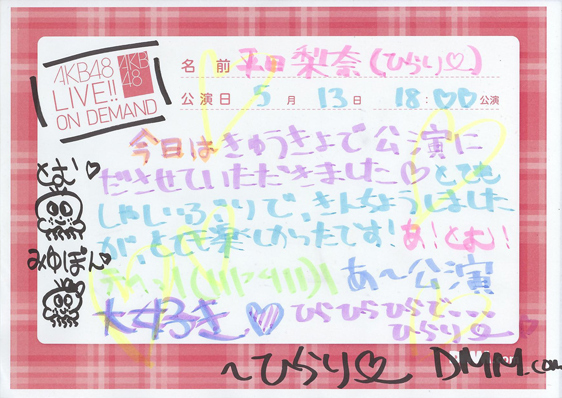 AKB48
LIVE!!
ON DEMAND
AKB
48
名前 平田梨奈(ひらり♡)
公演日 5月13日 18:00公演
今日はきゅうきょで公演に
ださせていただきました♡とても
しゃしぶりで、きんちょうしました
が、とても楽しかったです! あ!とむ!
あ〜公演
大好き♡ひらひらひらで...
ひらり♡
とむ♡
みゆぽん♡
〜ひらり♡ DMM.com